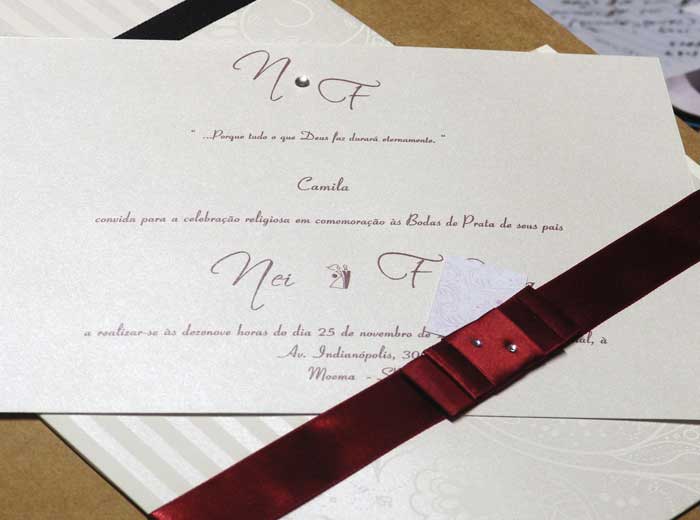 N F
" ...Porque tudo o que Deus faz durará eternamente. "
Camila
convida para a celebração religiosa em comemoração às Bodas de Prata de seus pais
Nei F
a realizar-se às dezenove horas do dia 25 de novembro de à
Av. Indianópolis, 30
Moema -